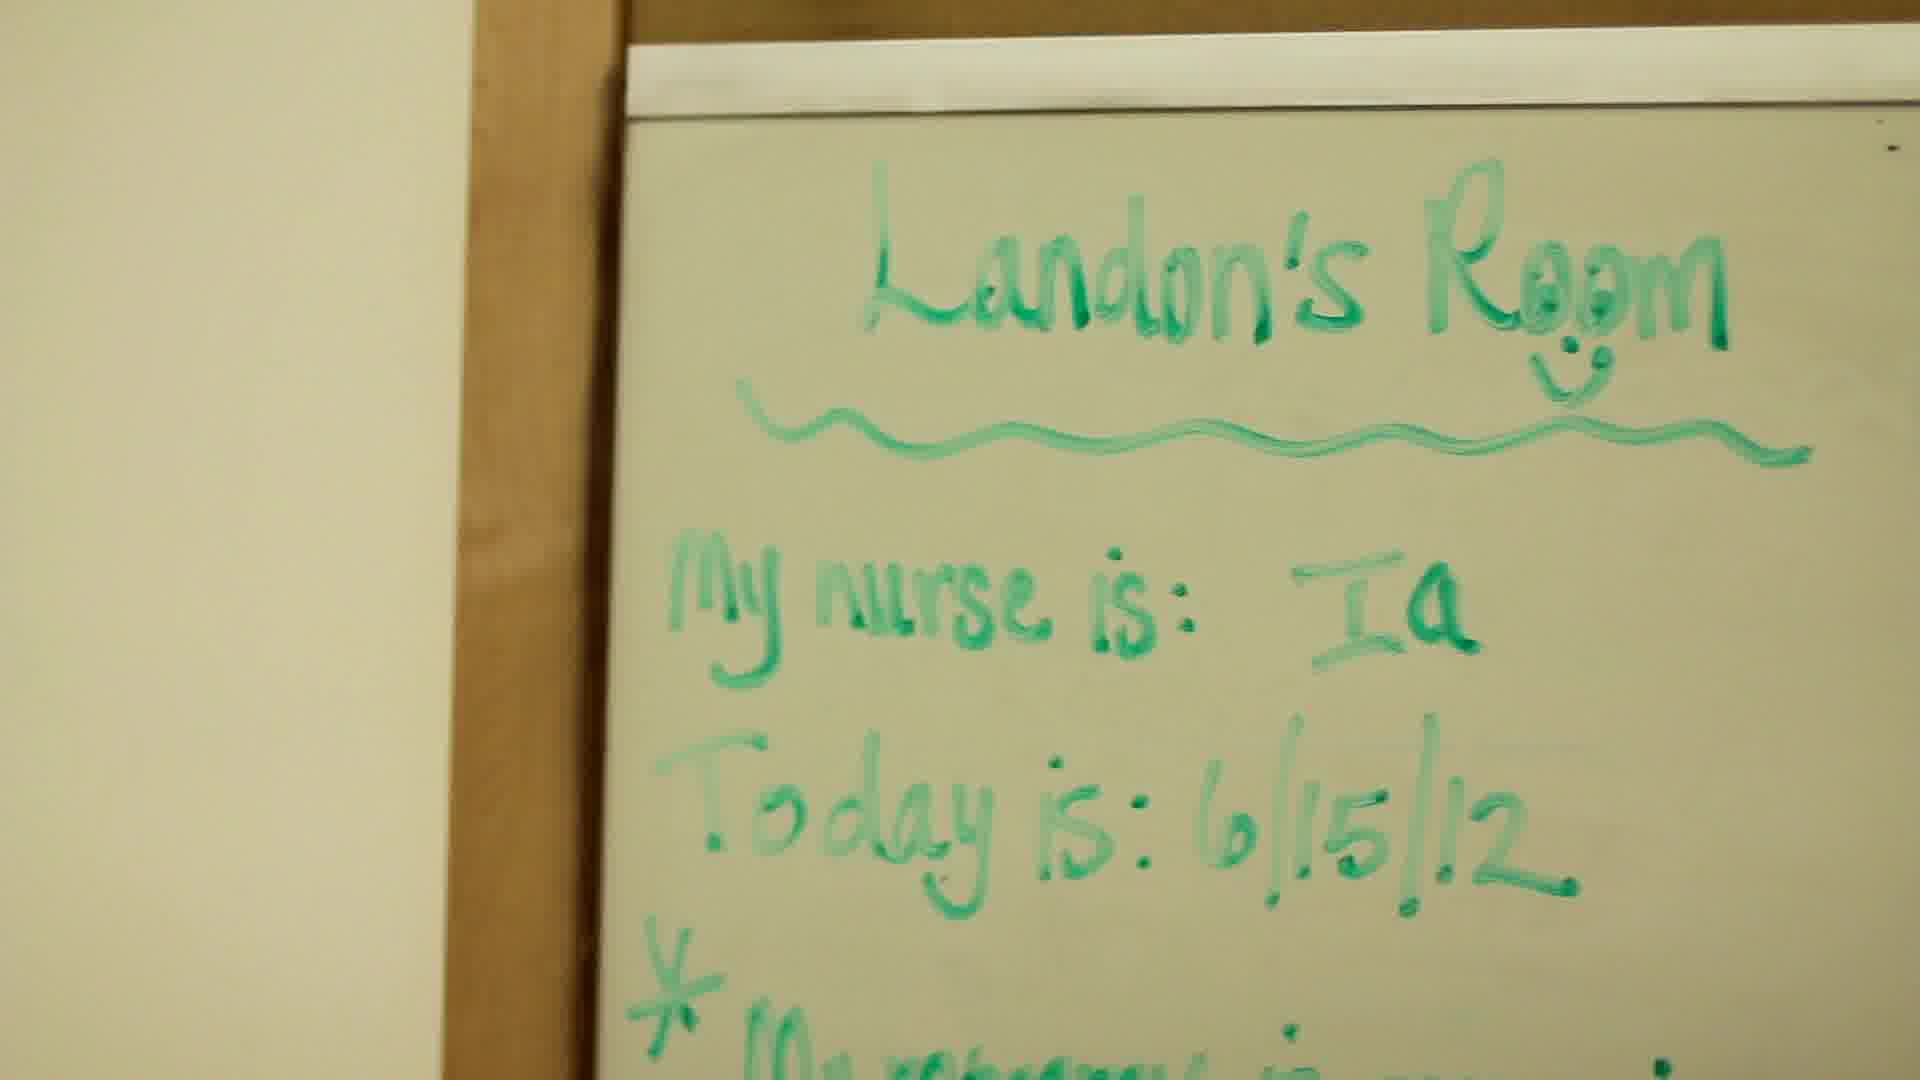 Landon's Room
My nurse is: Ia
Today is: 6/15/12
* My